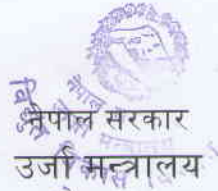 नेपाल सरकार
उर्जा मन्त्रालय